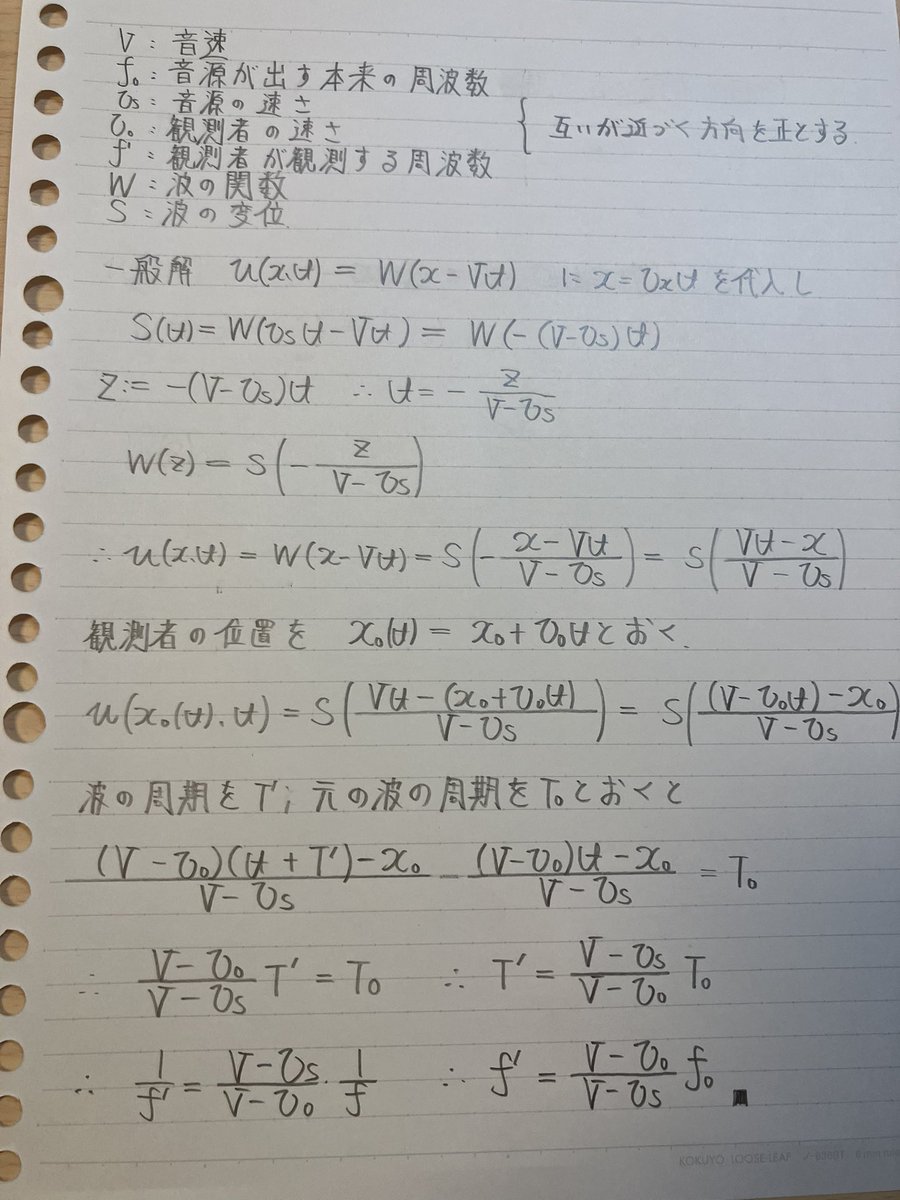 V : 音速
f₀ : 音源が出す本来の周波数
vs : 音源の速さ
v₀ : 観測者の速さ
{ 互いが近づく方向を正とする
f' : 観測者が観測する周波数
W : 波の関数
S : 波の変位
一般解 u(x,t) = W(x-Vt) に x=vxtを代入し
S(t) = W(vst-Vt) = W(-(V-vs)t)
z:= -(V-vs)t ∴ t = - z/(V-vs)
W(z) = S(- z/(V-vs))
∴ u(x,t) = W(x-Vt) = S(- (x-Vt)/(V-vs)) = S((Vt-x)/(V-vs))
観測者の位置を x₀(t) = x₀+v₀tとおく
u(x₀(t),t) = S((Vt-(x₀+v₀t))/(V-vs)) = S(((V-v₀t)-x₀)/(V-vs))
波の周期をT'; 元の波の周期をT₀とおくと
((V-v₀)(t+T')-x₀)/(V-vs) - ((V-v₀)t-x₀)/(V-vs) = T₀
∴ (V-v₀)/(V-vs) T' = T₀ ∴ T' = (V-vs)/(V-v₀) T₀
∴ 1/f' = (V-vs)/(V-v₀) · 1/f ∴ f' = (V-v₀)/(V-vs) f₀ ■